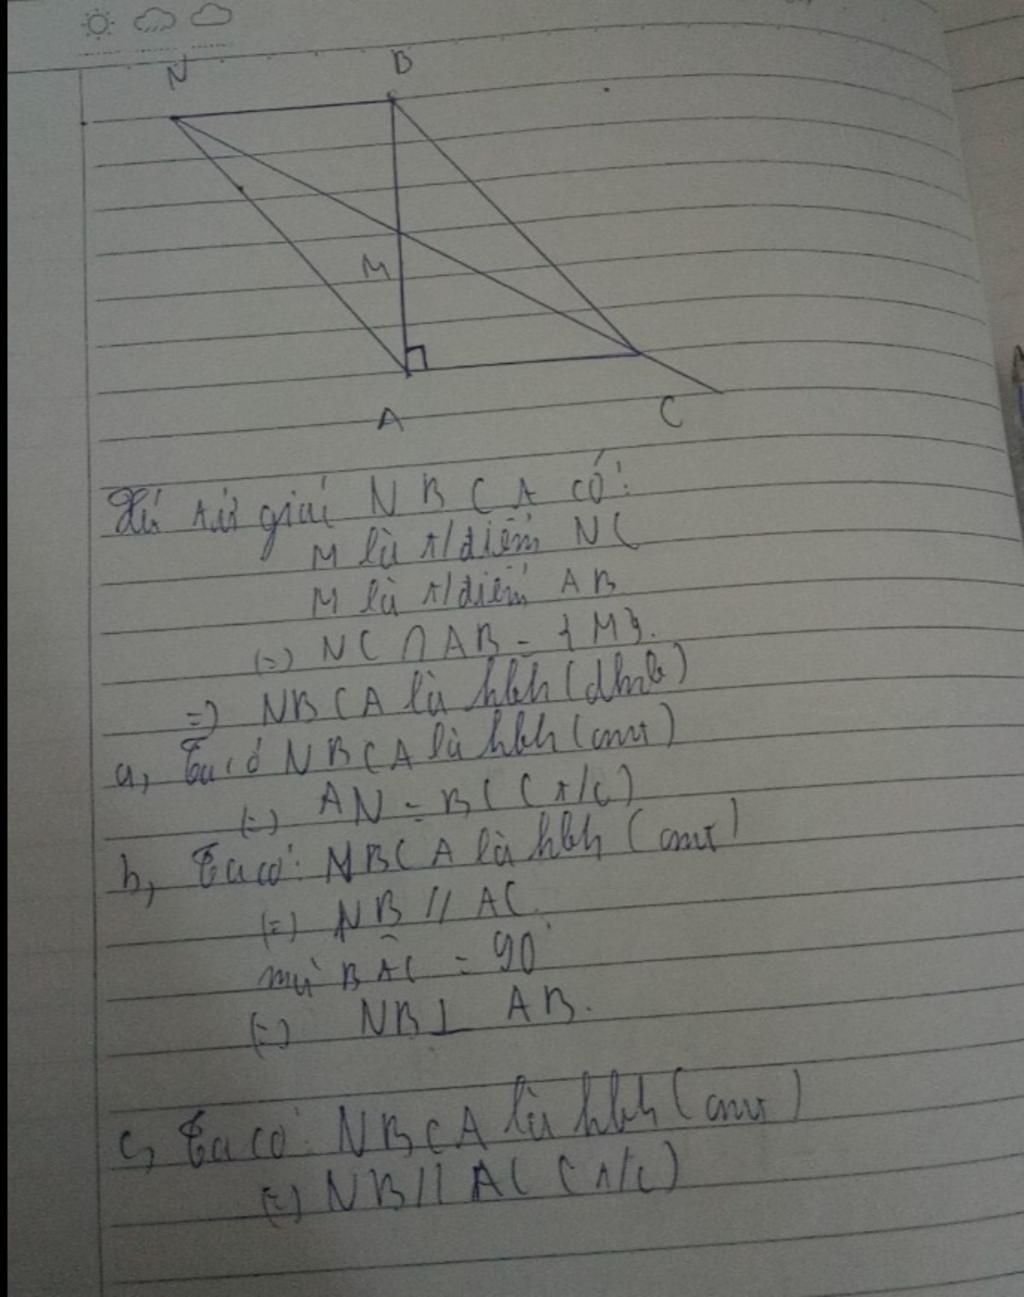 N B
M
A C
Xét tứ giác NBCA có:
M là t/điểm NC
M là t/điểm AB
(=) NC ∩ AB = {M}.
=) NBCA là hbh (dhnb)
a, Ta có NBCA là hbh (cmt)
(=) AN = BC (t/c)
b, Ta có: NBCA là hbh (cmt)
(=) NB // AC.
mà BÂC = 90°
(=) NB ⊥ AB.
c, Ta có: NBCA là hbh (cmt)
(=) NB // AC (t/c)